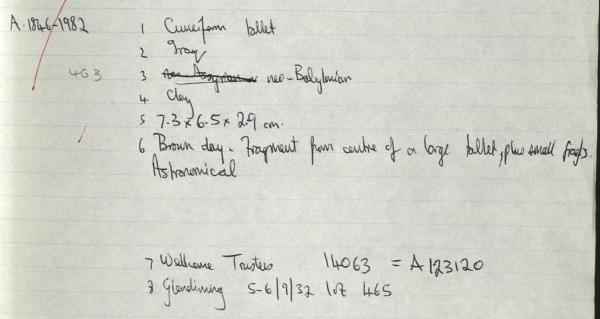 A.1846-1982 1 Cuneiform tablet
2 Iraq
463 3 neo-Babylonian
4 Clay
5 7.3 x 6.5 x 2.9 cm.
6 Brown clay. Fragment from centre of a large tablet, plus small frags.
Astronomical
7 Wellcome Trustees 14063 = A123120
8 Glendining 5-6/9/32 lot 465